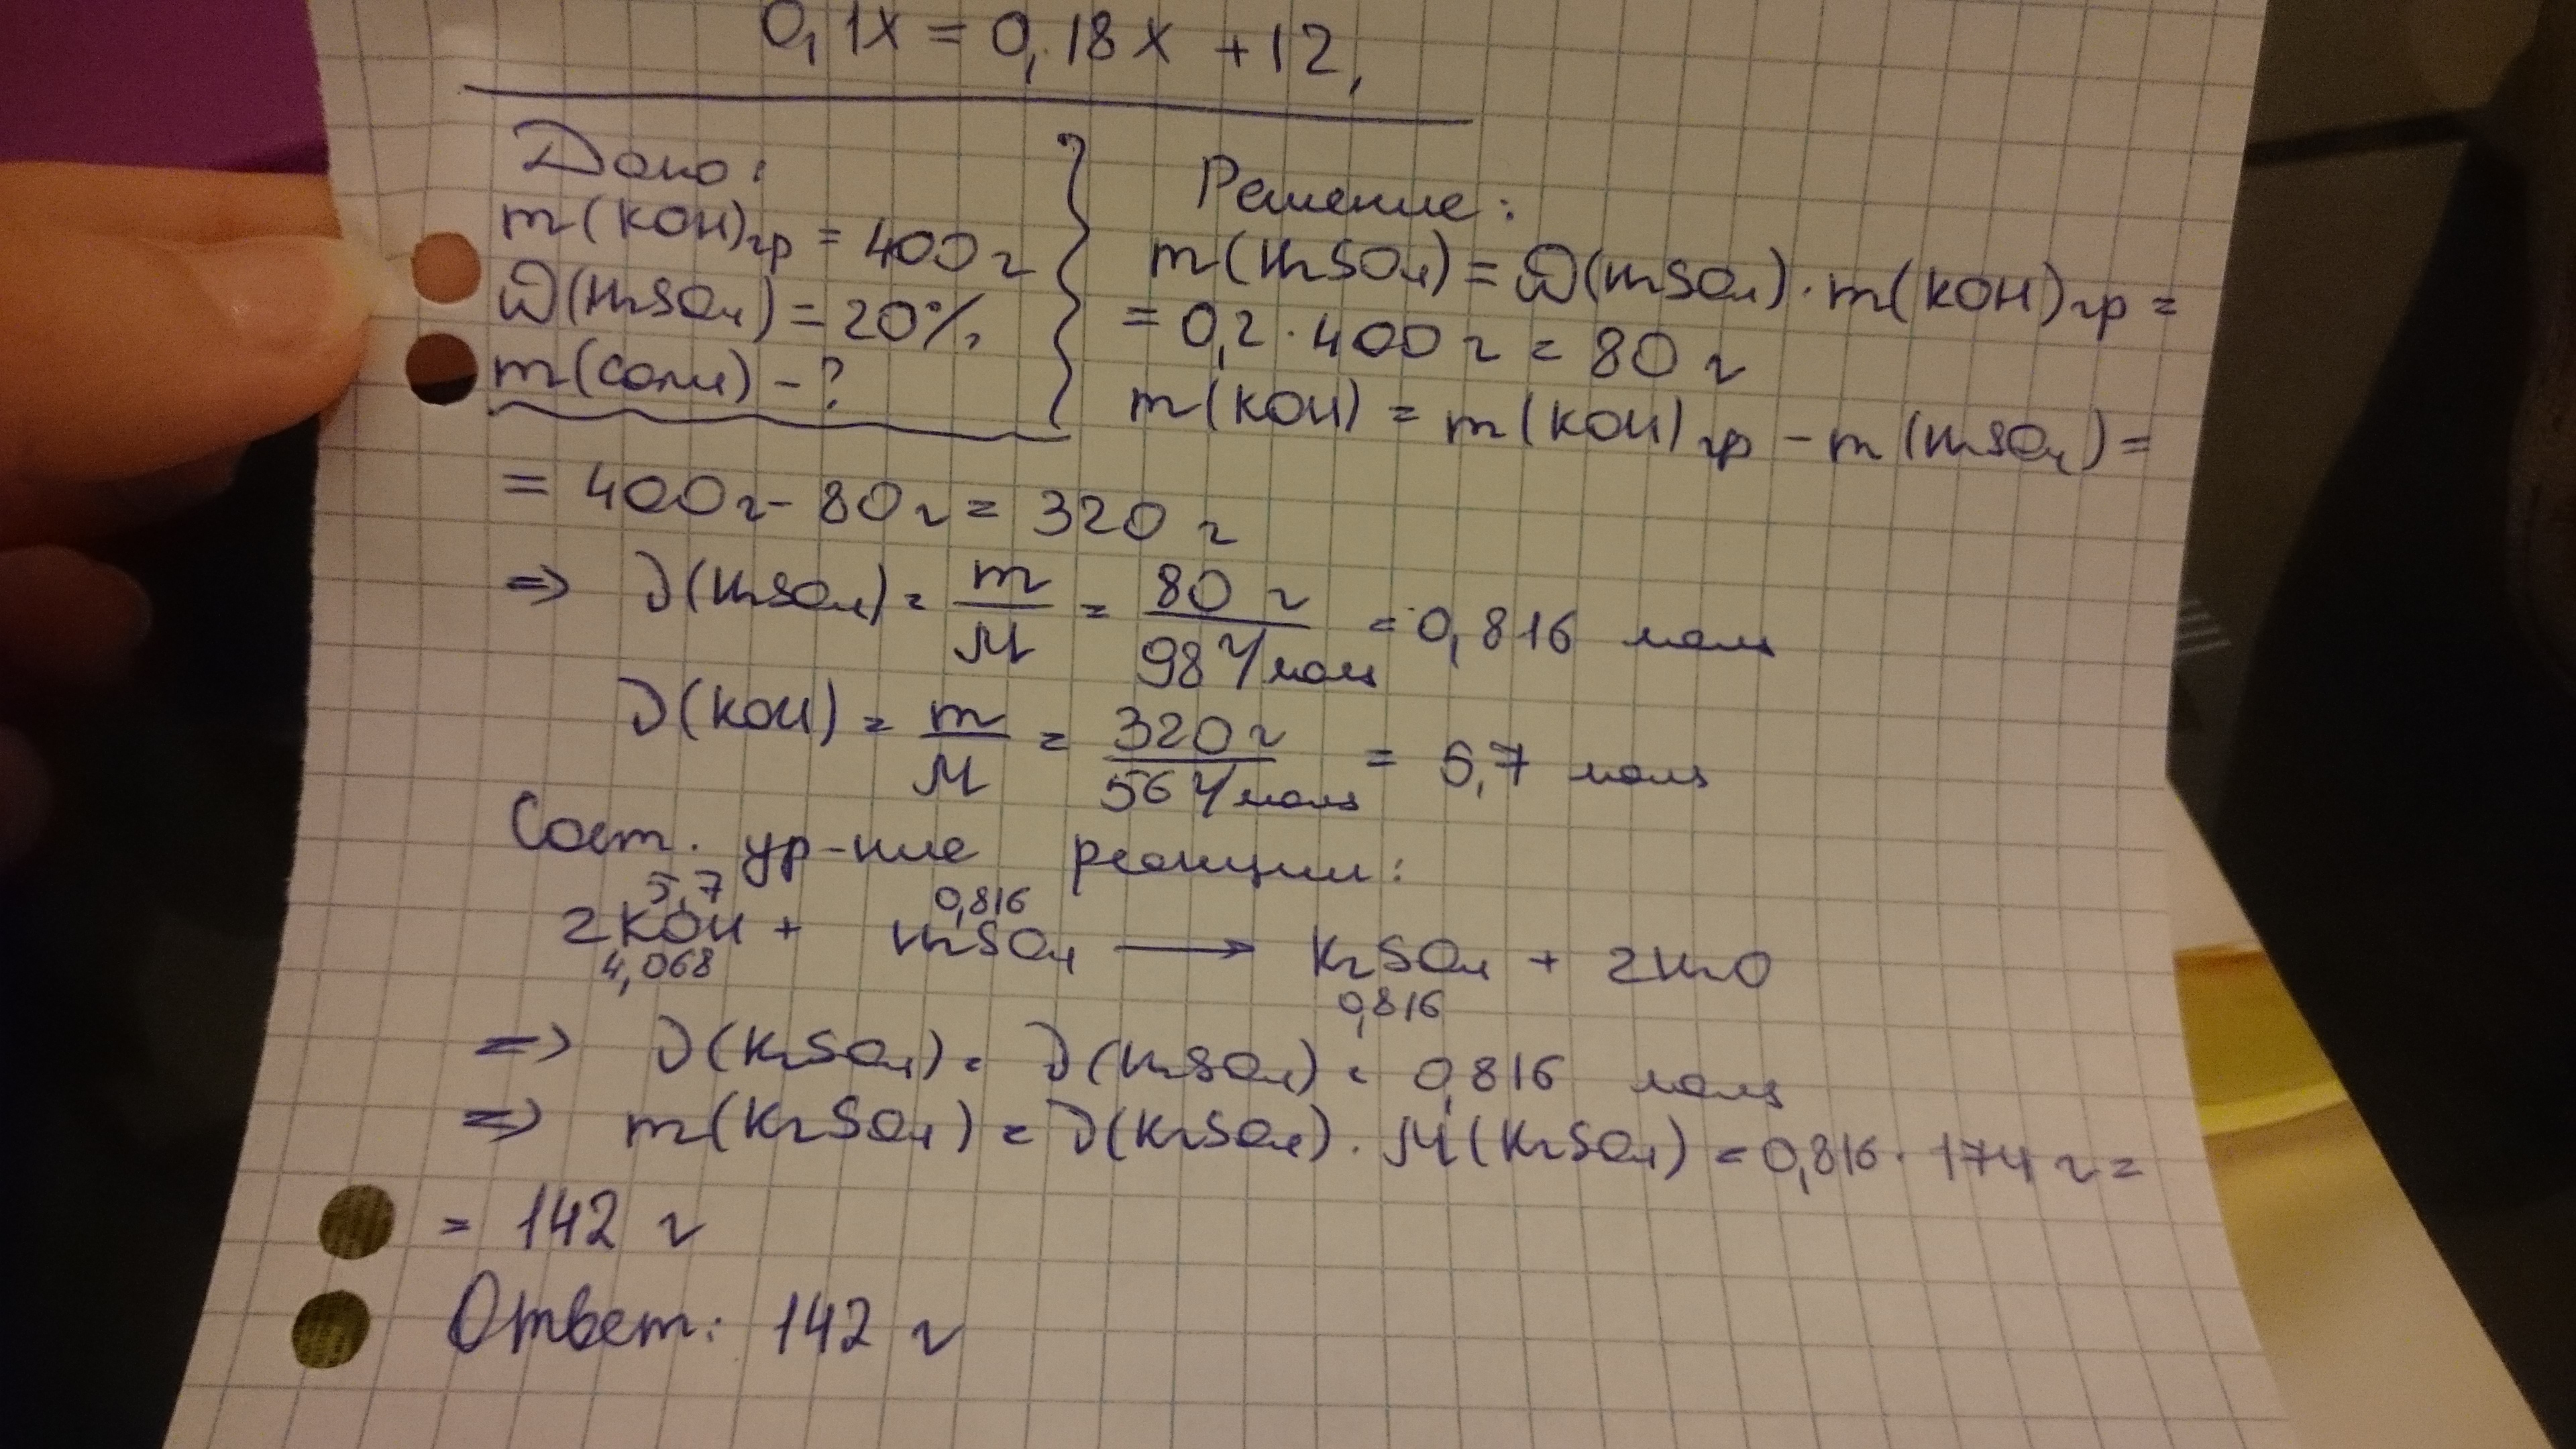 0,1x = 0,18x + 12,
Дано:
m(KOH)гр = 400 г
ω(H₂SO₄) = 20%
m(соли) - ?
Решение:
m(H₂SO₄) = ω(H₂SO₄) · m(KOH)гр =
= 0,2 · 400 г = 80 г
m(KOH) = m(KOH)гр - m(H₂SO₄) =
= 400 г - 80 г = 320 г
=> ν(H₂SO₄) = m/M = 80 г / 98 г/моль = 0,816 моль
ν(KOH) = m/M = 320 г / 56 г/моль = 5,7 моль
Сост. ур-ние реакции:
5,7 0,816
2KOH + H₂SO₄ ⟶ K₂SO₄ + 2H₂O
4,068 0,816
=> ν(K₂SO₄) = ν(H₂SO₄) = 0,816 моль
=> m(K₂SO₄) = ν(K₂SO₄) · M(K₂SO₄) = 0,816 · 174 г =
= 142 г
Ответ: 142 г